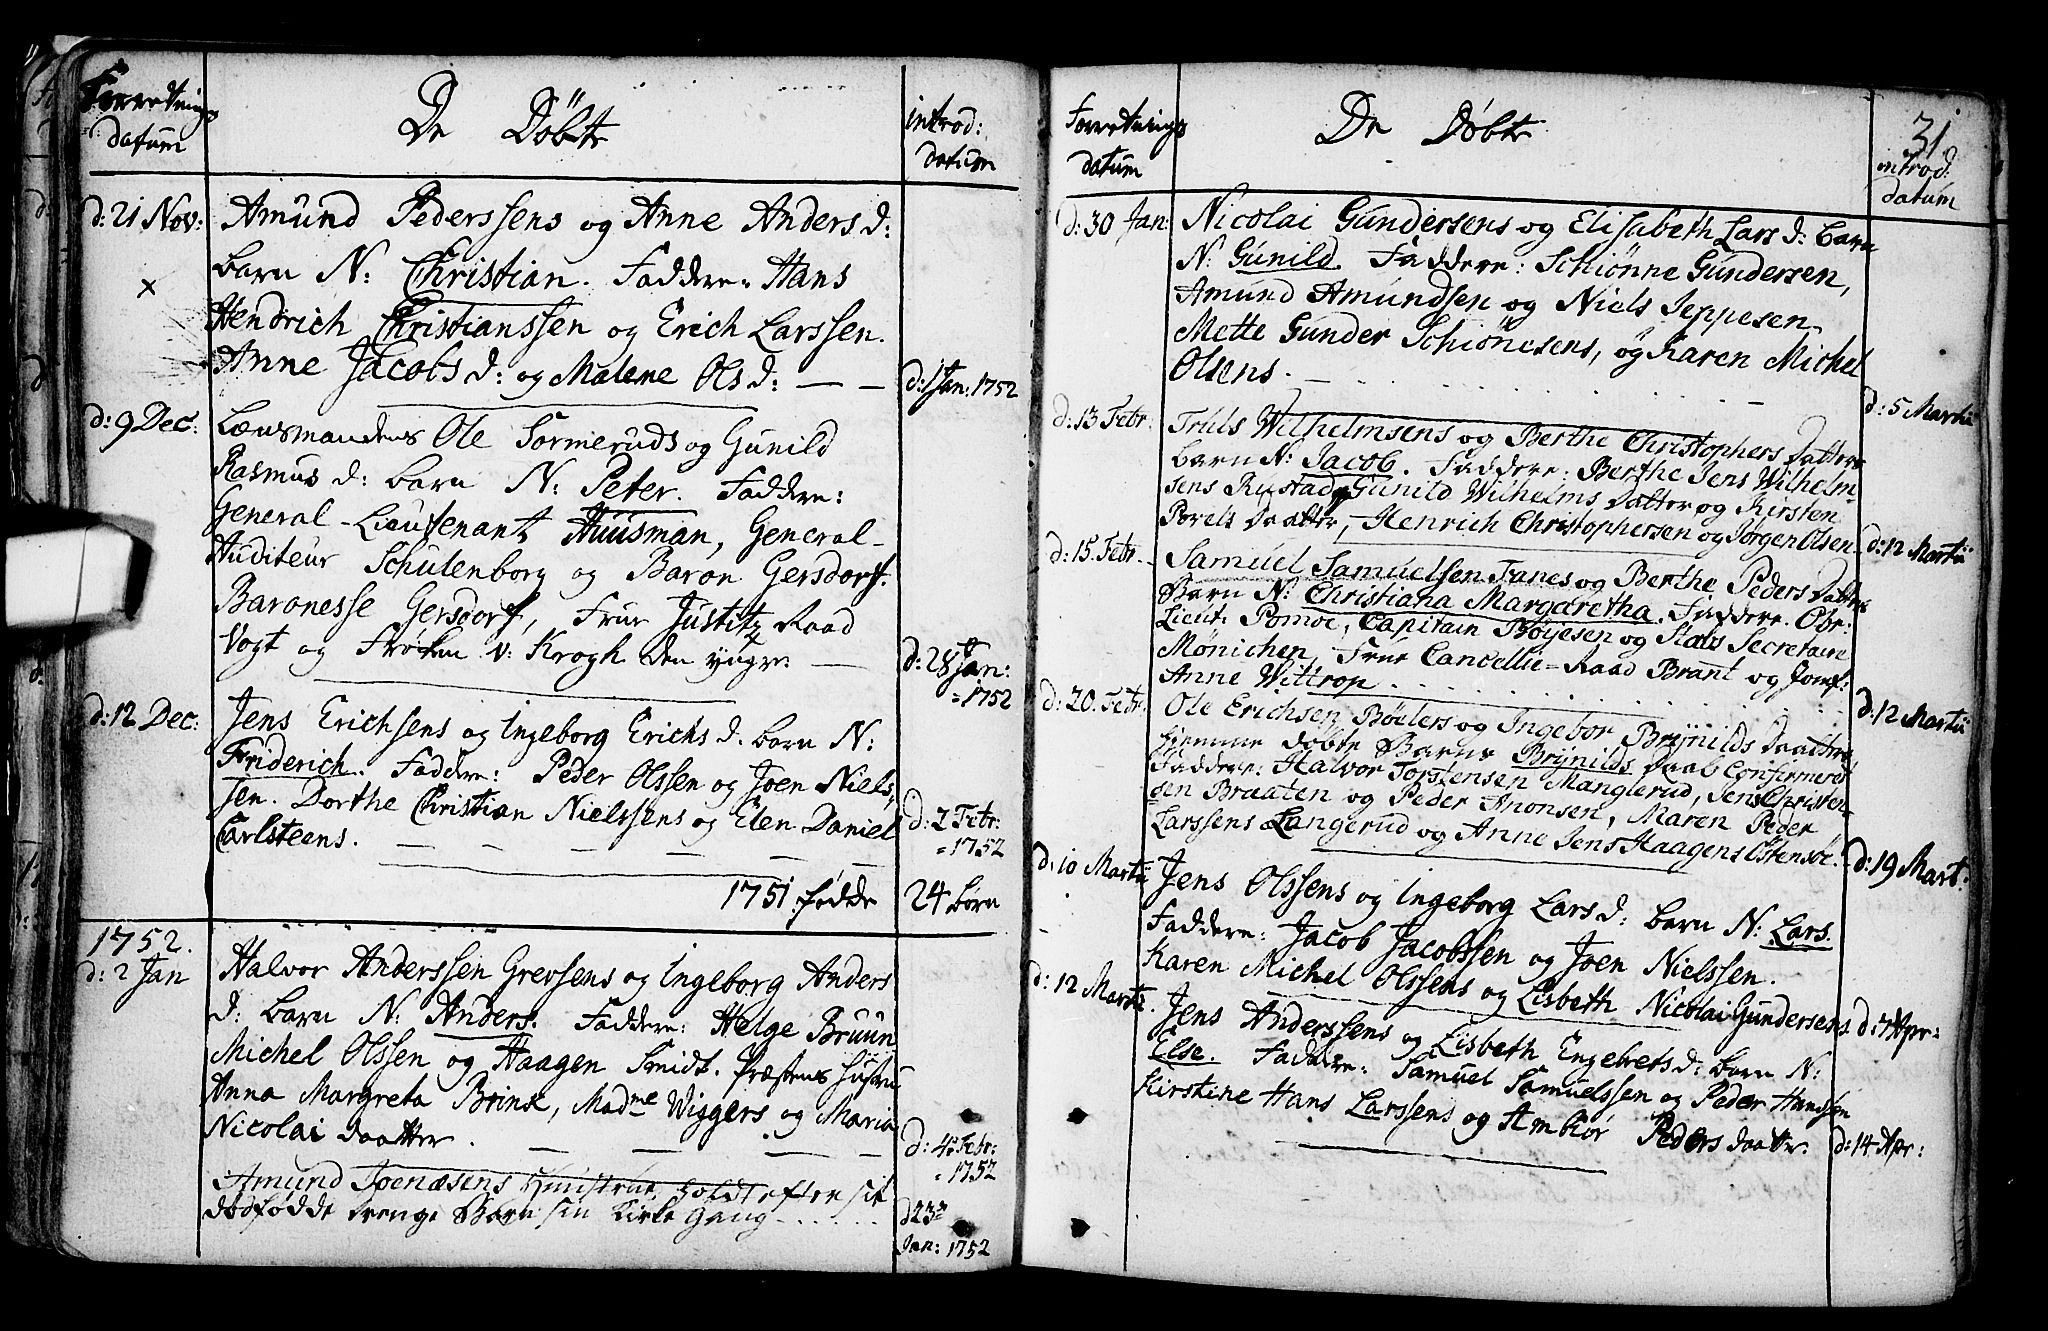 Forretnings
datum
De Döbte
introd:
datum
d: 21 Nov:
Amund Pederssens og Anne Anders d:
barn N: Christian. Faddere: Hans
Hendrich Christianssen og Erich Larssen.
Anne Jacobs d: og Malene Ols d: — —
d: 1 Jan: 1752
d: 9 Dec:
Lænsmandens Ole Sormeruds og Gunild
Rasmus d: barn N: Peter. Faddere:
General-Lieutenant Huusman, General-
Auditeur Schulenborg og Baron Gersdorf.
Baronesse Gersdorf, Frue Justitz Raad
Vogt og Frøken v: Krogh den yngre: —
d: 28 Jan:
= 1752
d: 12 Dec:
Jens Erichsens og Ingeborg Erichs d: barn N:
Friderich. Faddere: Peder Olssen og Joen Niels,
sen. Dorthe Christian Nielssens og Elen Daniel
Carlsteens. — — — — — —
d: 2 Febr:
= 1752
1751. fødde 24 börn
1752.
d: 2 Jan
Halvor Anderssen Grevsens og Ingeborg Anders
d: barn N: Anders. Faddere: Helge Bruun
Michel Olssen og Haagen Smidt. Præstens hustru
Anna Margreta Brinx, Madme Wiggers og Maria
Nicolai daatter. — — — —
d: 4 Febr:
= 1752
Amund Joenæsens Huustrue, holdt efter sit
dødfødde drenge Barn sin Kirke Gang ......
d 23
Jan: 1752
Forretnings
datum
De Döbte
31
introd:
datum
d: 30 Jan:
Nicolai Gundersens og Elisabeth Lars d: barn
N: Gunild. Faddere: Schiønne Gundersen,
Amund Amundsen og Niels Jeppesen.
Mette Gunder Schiönesens, og Karen Michel
Olsens.
d: 5 Martii
d: 13 Febr:
Truls Wilhelmsens og Berthe Christophers Datters
barn N: Jacob. Faddere: Berthe Jens Wilhelm-
sens Rustad, Gunild Wilhelms Datter og Kirsten
Povels Daatter, Henrich Christophersen og Jørgen Olsen
d: 12 Martii
d: 15. Febr.
Samuel Samuelsen Fanes og Berthe Peders Datters
Barn N: Christiana Margaretha. Faddere. Obr:
Lieut: Pomoe, Capitain Bøyesen og Stabs Secretaire
Mønichen, Frue Cancellie-Raad Brant og Jomf:
Anne Wittrop.
d: 12 Martii
d: 20. Febr:
Ole Erichsen Bølers og Ingebor Brynilds Daatters
hiemme døbte Barns Brynilds Daab Confirmeret
Faddere: Halvor Torstensen Manglerud, Jens Christen-
sen Braaten og Peder Anonsen, Maren Peder
Larssens Langerud og Anne Jens Haagens Østensøe.
d: 19 Mart:
d: 10 Martii
Jens Olssens og Ingeborg Lars d: barn N: Lars.
Faddere: Jacob Jacobssen og Joen Nielssen.
Karen Michel Olssens og Lisbeth Nicolai Gundersens
d: 7 Apr:
d: 12 Martii.
Jens Anderssens og Lisbeth Engebrets d: barn N:
Else. Faddere: Samuel Samuelssen og Peder Hanssen
Kirstine Hans Larssens og Ambiør Peders daatter.
d: 14 Apr: